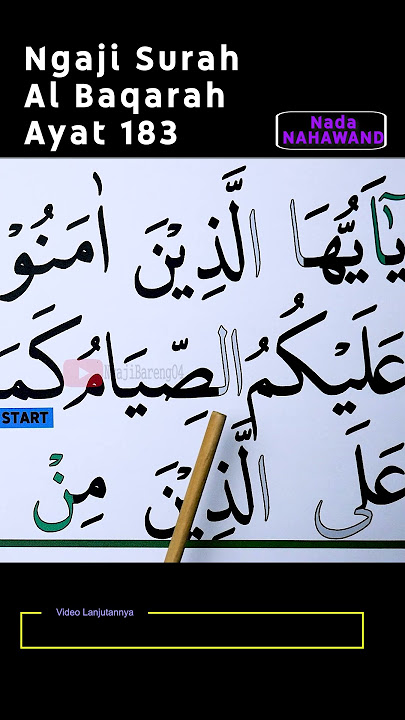 Ngaji Surah
Al Baqarah
Ayat 183
Nada
NAHAWAND
يٰٓاَيُّهَا الَّذِيْنَ اٰمَنُوْ
عَلَيْكُمُ الصِّيَامُ كَمَ
NgajiBareng04
START
عَلَى الَّذِيْنَ مِنْ
Video Lanjutannya